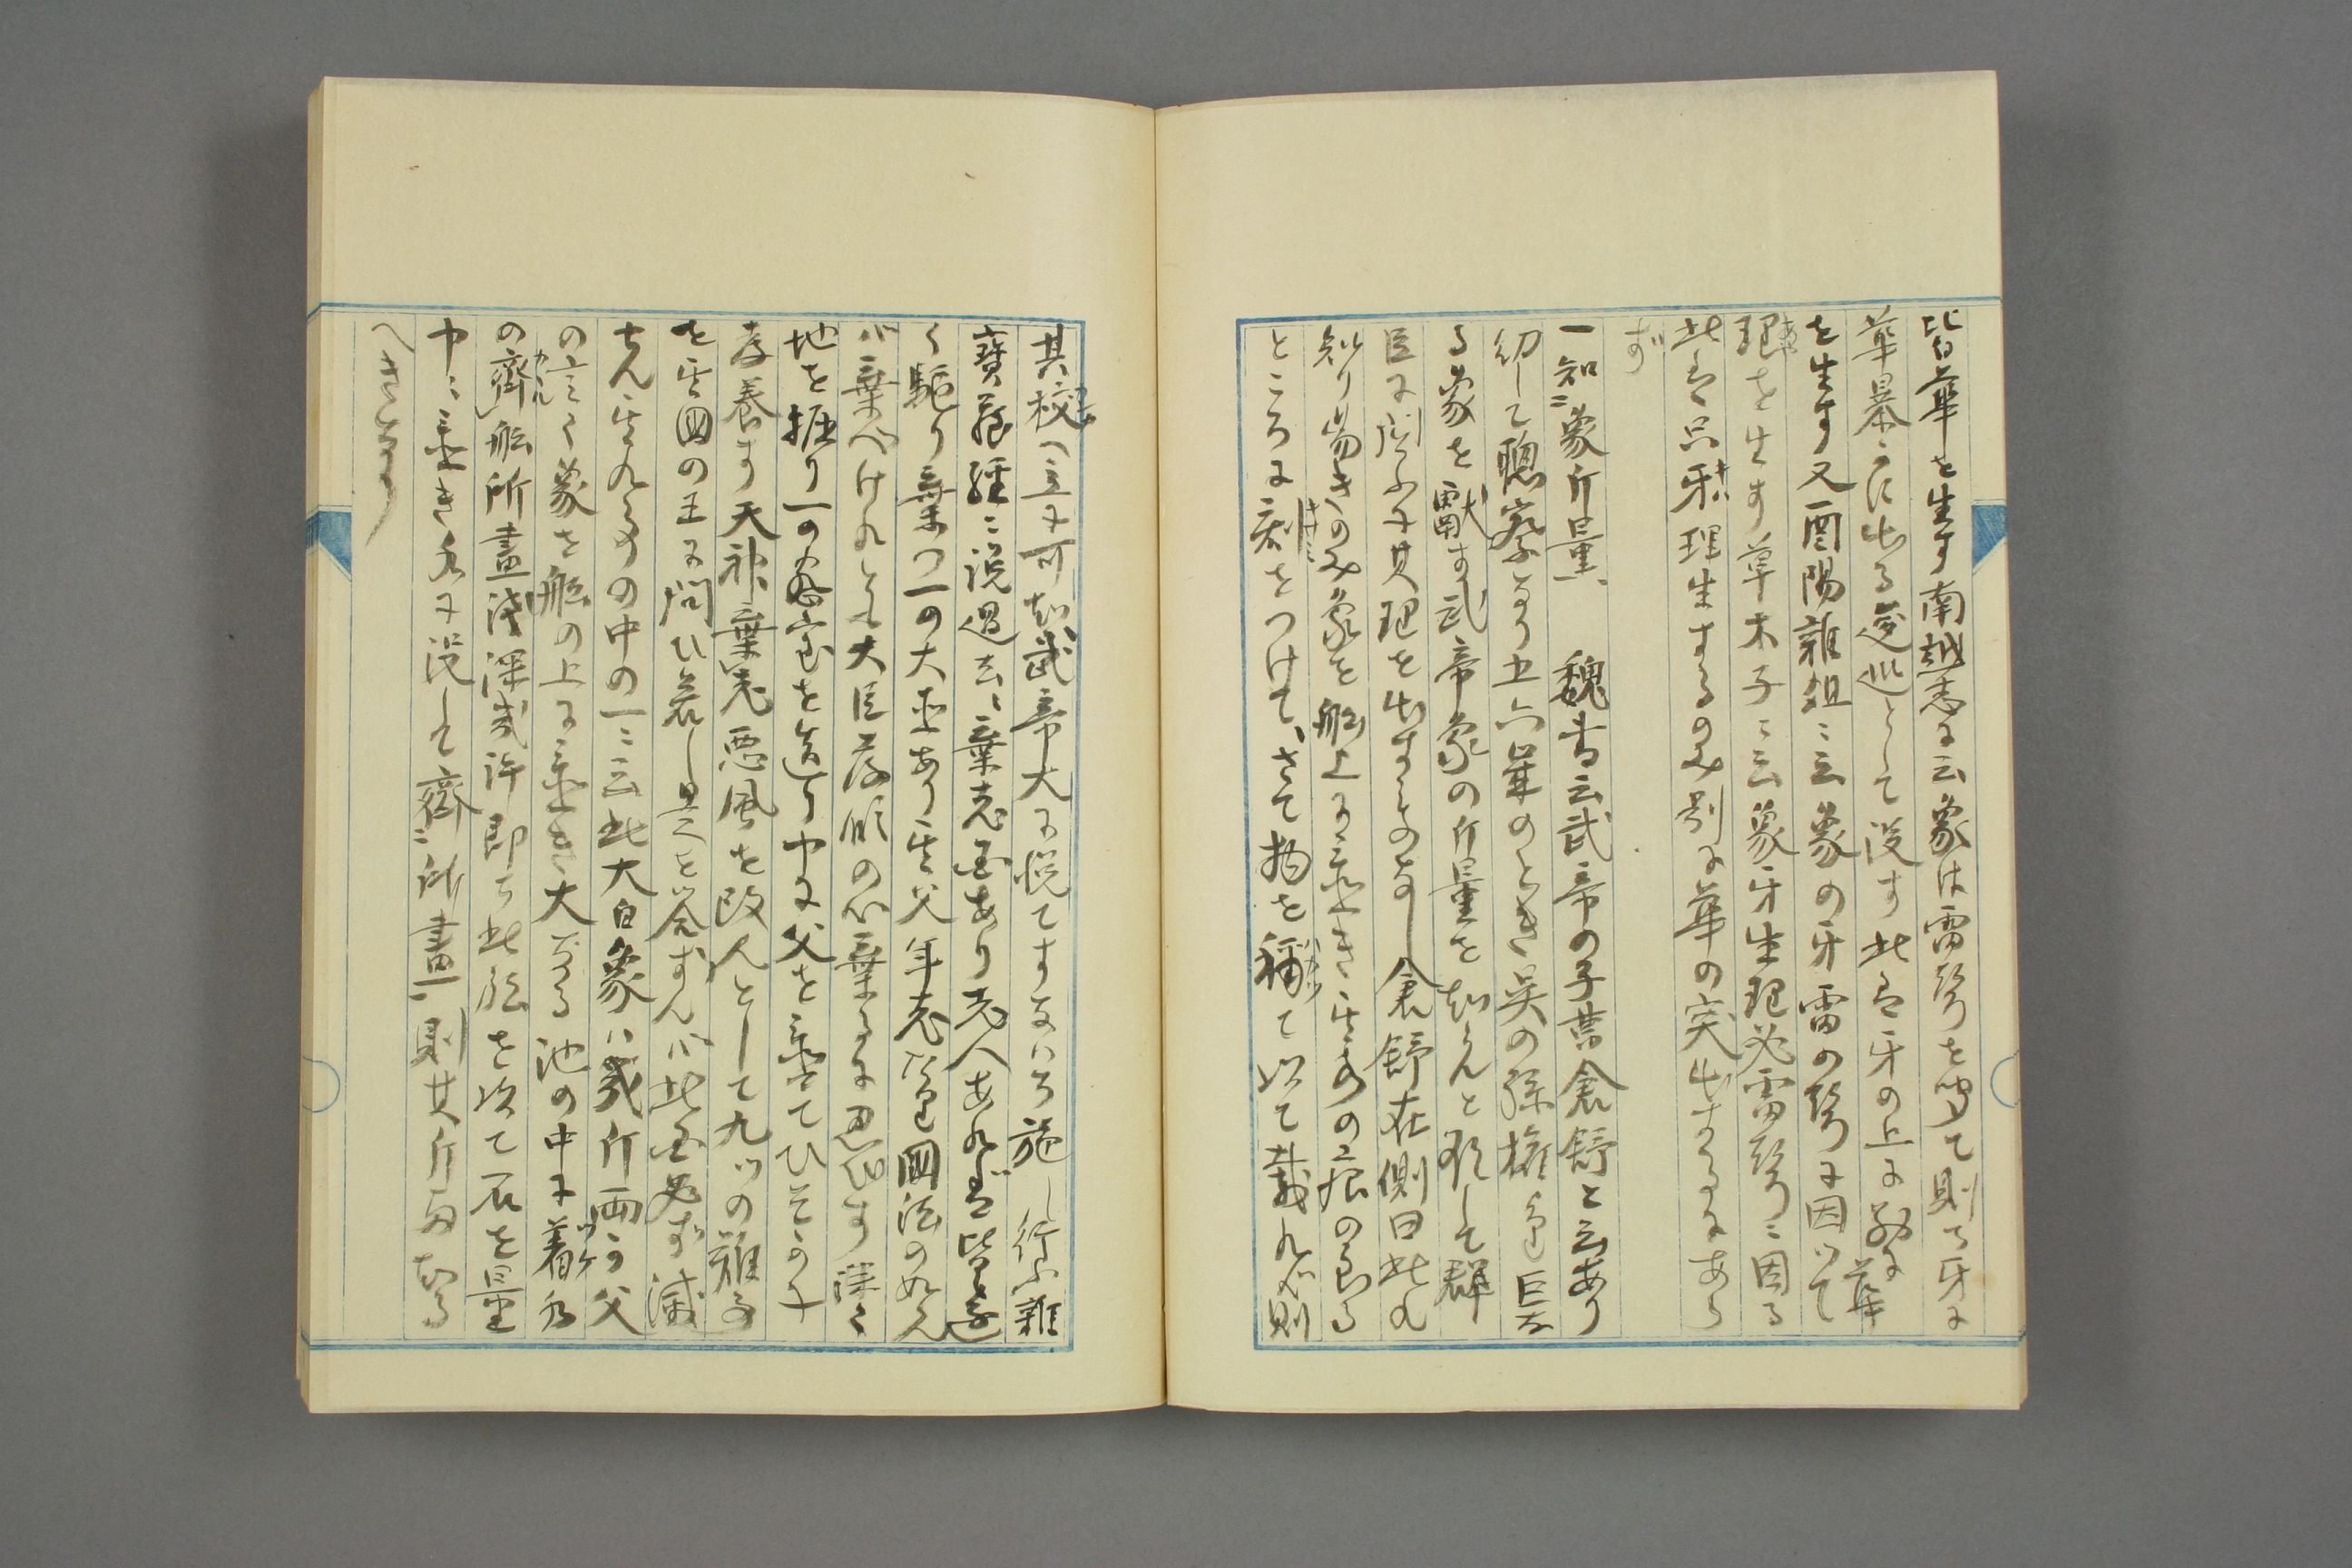 皆華を生す南越志に云象は雷聲を聞て則ち牙に
華暴かに出る逡巡として没す此は牙の上に華
を生す又酉陽雑俎ニ云象の牙雷の聲に因って
理を生す草木子ニ云象牙生理必雷聲ニ因る
此は只牙理生するのみ別に華の突出するにあら
ず
一知ニ象斤量一 魏書云武帝の子曹倉舒と云あり
幼して聰察なり五六歳のとき呉の孫權より巨大な
る象を獻す武帝象の斤量を知らんと欲して群
臣に問ふに其理を出すものなし倉舒在側曰此れ
知り易きのみ象を船上に乗き其水の痕の至る
ところに刻をつけて、さて物を稱て以て載れバ則
其校へ立に可知武帝大に悦てすなはち施し行ふ雜
寶蔵經ニ説過去ニ棄老国あり老人あれば皆遠
く駈り棄つ一の大臣あり其父年老けたり國法の如くん
バ棄べけれとも大臣孝順の心棄るに忍びす深く
地を掘り一の密室を造り中に父を置てひそかに
孝養す天神棄老悪風を改んとして九ツの難事
を其國の王に問ひ若し是を答ずんバ此国必ず滅
せん其九つの中の一ニ云此大白象ハ幾斤両か父
の言く象を船の上に置き大なる池の中に着水
の齊船所畫浅深幾許即ち此船を以て石を量
中ニ置き水に没して齊ニ所畫一則其斤両知る
へきなり